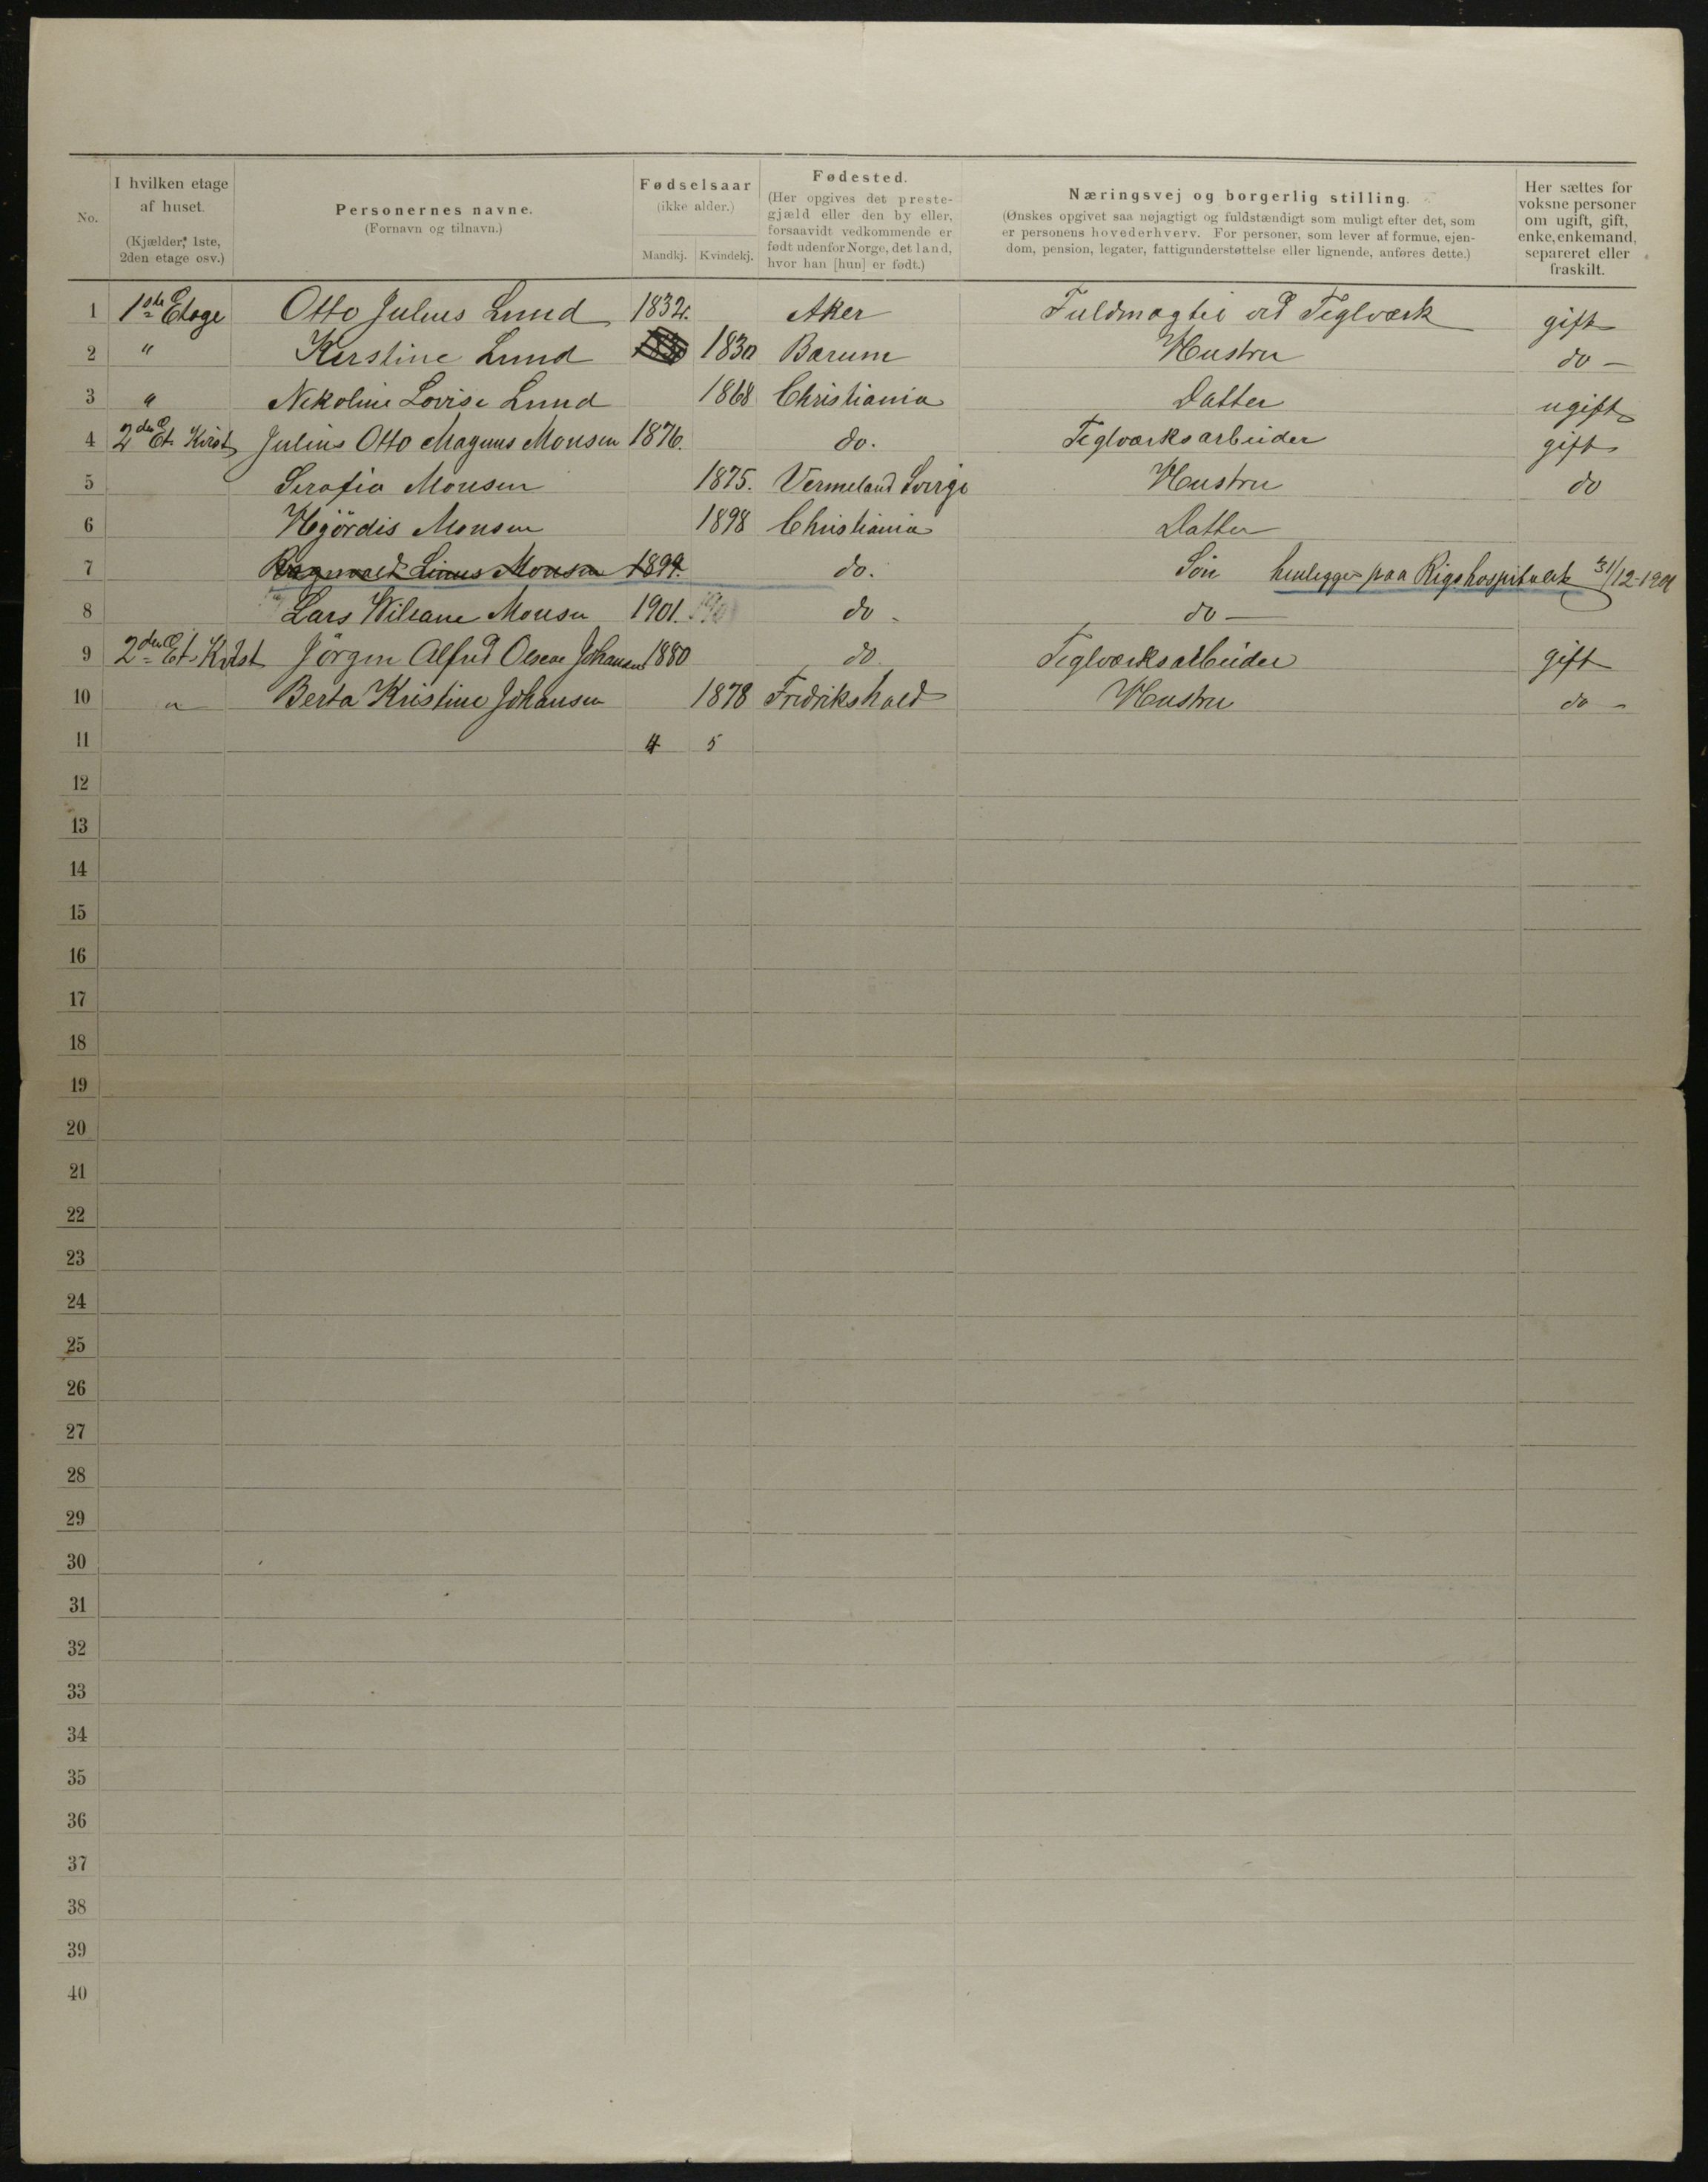 No.
I hvilken etage
af huset.
(Kjælder, 1ste,
2den etage osv.)
Personernes navne.
(Fornavn og tilnavn.)
Fødselsaar
(ikke alder.)
Mandkj. Kvindekj.
Fødested.
(Her opgives det preste-
gjæld eller den by eller,
forsaavidt vedkommende er
født udenfor Norge, det land,
hvor han [hun] er født.)
Næringsvej og borgerlig stilling.
(Ønskes opgivet saa nøjagtigt og fuldstændigt som muligt efter det, som
er personens hovederhverv. For personer, som lever af formue, ejen-
dom, pension, legater, fattigunderstøttelse eller lignende, anføres dette.)
Her sættes for
voksne personer
om ugift, gift,
enke, enkemand,
separeret eller
fraskilt.
1 1ste Etage Otto Julius Lund 1832. Aker Fuldmægtig ved Teglværk gift
2 " Kerstine Lund 1830 Barum Hustru do -
3 " Nekoline Lovise Lund 1868 Christiania Datter ugift
4 2den Et. Kvist Julius Otto Magnus Monsen 1876. do. Teglværksarbeider gift
5 Serafia Monsen 1875. Vermeland Sverge Hustru do
6 Hjördis Monsen 1898 Christiania Datter
7 Linus Monsen 1899. do. Sön henligger paa Rigshospitalet 31/12-1901
8 Lars Monsen 1901. do - do -
9 2den Et. Kvist Jörgen Alfred Johansen 1880 do Teglværksarbeider gift
10 " Berta Kristine Johansen 1878 Fridrikshald Hustru do -
11 4 5
12
13
14
15
16
17
18
19
20
21
22
23
24
25
26
27
28
29
30
31
32
33
34
35
36
37
38
39
40